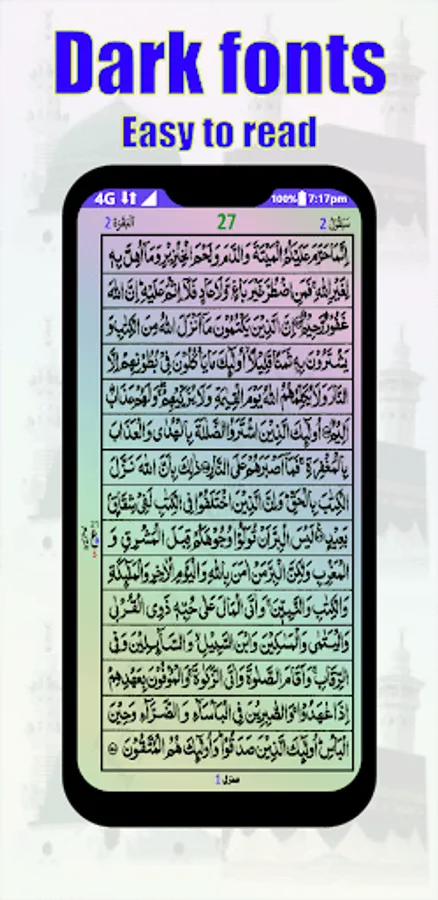 Dark fonts
Easy to read
4G 100% 7:17pm
البقرة 2 27 سَيَقُوْلُ 2
اِنَّمَا حَرَّمَ عَلَيْكُمُ الْمَيْتَةَ وَالدَّمَ وَلَحْمَ الْخِنْزِيْرِ وَمَآ اُهِلَّ بِهٖ
لِغَيْرِ اللّٰهِ ۚ فَمَنِ اضْطُرَّ غَيْرَ بَاغٍ وَّلَا عَادٍ فَلَآ اِثْمَ عَلَيْهِ ؕ اِنَّ اللّٰهَ
غَفُوْرٌ رَّحِيْمٌ اِنَّ الَّذِيْنَ يَكْتُمُوْنَ مَآ اَنْزَلَ اللّٰهُ مِنَ الْكِتٰبِ وَ
يَشْتَرُوْنَ بِهٖ ثَمَنًا قَلِيْلًا ۙ اُولٰٓئِكَ مَا يَاْكُلُوْنَ فِيْ بُطُوْنِهِمْ اِلَّا
النَّارَ وَلَا يُكَلِّمُهُمُ اللّٰهُ يَوْمَ الْقِيٰمَةِ وَلَا يُزَكِّيْهِمْ ۚ وَلَهُمْ عَذَابٌ
اَلِيْمٌ اُولٰٓئِكَ الَّذِيْنَ اشْتَرَوُا الضَّلٰلَةَ بِالْهُدٰى وَالْعَذَابَ
بِالْمَغْفِرَةِ ۚ فَمَآ اَصْبَرَهُمْ عَلَى النَّارِ ذٰلِكَ بِاَنَّ اللّٰهَ نَزَّلَ
الْكِتٰبَ بِالْحَقِّ ؕ وَاِنَّ الَّذِيْنَ اخْتَلَفُوْا فِي الْكِتٰبِ لَفِيْ شِقَاقٍۭ
بَعِيْدٍ لَيْسَ الْبِرَّ اَنْ تُوَلُّوْا وُجُوْهَكُمْ قِبَلَ الْمَشْرِقِ وَ
الْمَغْرِبِ وَلٰكِنَّ الْبِرَّ مَنْ اٰمَنَ بِاللّٰهِ وَالْيَوْمِ الْاٰخِرِ وَالْمَلٰٓئِكَةِ
وَالْكِتٰبِ وَالنَّبِيّٖنَ ۚ وَاٰتَى الْمَالَ عَلٰى حُبِّهٖ ذَوِي الْقُرْبٰى
وَالْيَتٰمٰى وَالْمَسٰكِيْنَ وَابْنَ السَّبِيْلِ ۙ وَالسَّآئِلِيْنَ وَفِي
الرِّقَابِ ۚ وَاَقَامَ الصَّلٰوةَ وَاٰتَى الزَّكٰوةَ ۚ وَالْمُوْفُوْنَ بِعَهْدِهِمْ
اِذَا عٰهَدُوْا ۚ وَالصّٰبِرِيْنَ فِي الْبَاْسَآءِ وَالضَّرَّآءِ وَحِيْنَ
الْبَاْسِ ؕ اُولٰٓئِكَ الَّذِيْنَ صَدَقُوْا ؕ وَاُولٰٓئِكَ هُمُ الْمُتَّقُوْنَ
منزل 1